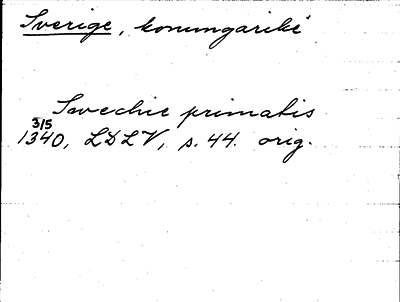 Sverige, konungarike
Swechie primatis
3/5
1340, LDLV, s. 44. orig.